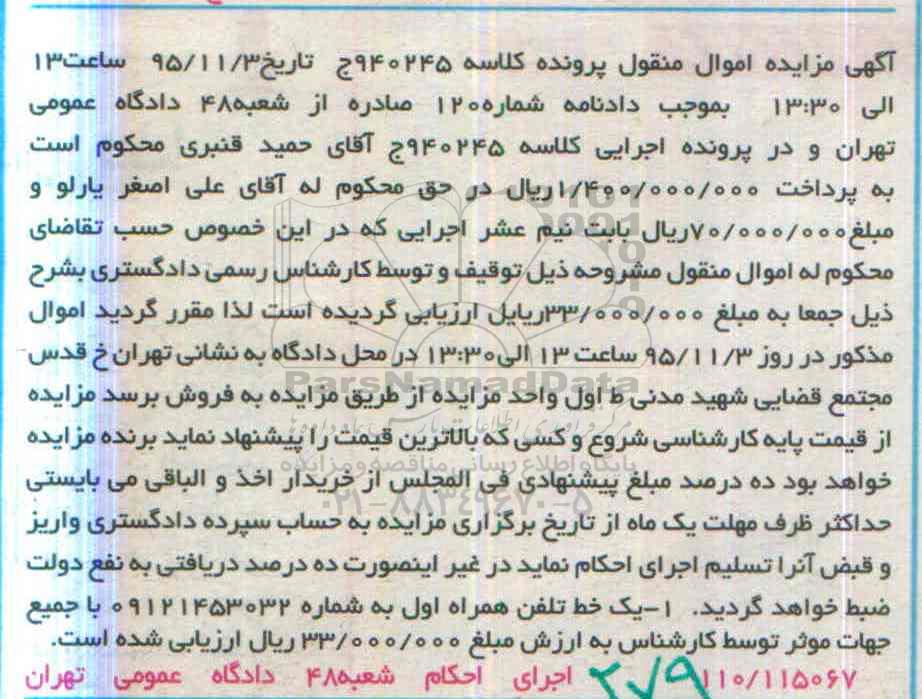 آگهی مزایده اموال منقول پرونده کلاسه ۹۴۰۲۴۵ج تاریخ۹۵/۱۱/۳ ساعت۱۳
الی ۱۳:۳۰ بموجب دادنامه شماره۱۲۰ صادره از شعبه۴۸ دادگاه عمومی
تهران و در پرونده اجرایی کلاسه ۹۴۰۲۴۵ج آقای حمید قنبری محکوم است
به پرداخت ۱/۴۰۰/۰۰۰/۰۰۰ریال در حق محکوم له آقای علی اصغر یارلو و
مبلغ۷۰/۰۰۰/۰۰۰ریال بابت نیم عشر اجرایی که در این خصوص حسب تقاضای
محکوم له اموال منقول مشروحه ذیل توقیف و توسط کارشناس رسمی دادگستری بشرح
ذیل جمعا به مبلغ ۳۳/۰۰۰/۰۰۰ریایل ارزیابی گردیده است لذا مقرر گردید اموال
مذکور در روز ۹۵/۱۱/۳ ساعت ۱۳ الی۱۳:۳۰ در محل دادگاه به نشانی تهران خ قدس
ParsNamadData
مجتمع قضایی شهید مدنی ط اول واحد مزایده از طریق مزایده به فروش برسد مزایده
از قیمت پایه کارشناسی شروع و کسی که بالاترین قیمت را پیشنهاد نماید برنده مزایده
پایگاه اطلاع رسانی مناقصه و مزایده
خواهد بود ده درصد مبلغ پیشنهادی فی المجلس از خریدار اخذ و الباقی می بایستی
۰۲۱-۸۸۳۴۹۶۷۰-۵
حداکثر ظرف مهلت یک ماه از تاریخ برگزاری مزایده به حساب سپرده دادگستری واریز
و قبض آنرا تسلیم اجرای احکام نماید در غیر اینصورت ده درصد دریافتی به نفع دولت
ضبط خواهد گردید. ۱-یک خط تلفن همراه اول به شماره ۰۹۱۲۱۴۵۳۰۳۲ با جمیع
جهات موثر توسط کارشناس به ارزش مبلغ ۳۳/۰۰۰/۰۰۰ ریال ارزیابی شده است.
۱۱۰/۱۱۵۰۶۷ ۲۷۹ اجرای احکام شعبه۴۸ دادگاه عمومی تهران